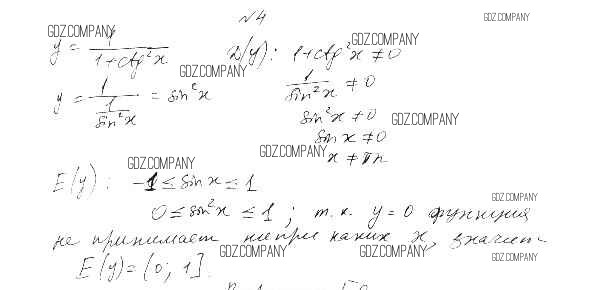 №4
GDZ.COMPANY
GDZ.COMPANY
y = 1/(1+ctg²x) D(y): 1+ctg²x ≠ 0
GDZ.COMPANY
GDZ.COMPANY
y = 1/(1/sin²x) = sin²x 1/sin²x ≠ 0
sin²x ≠ 0
GDZ.COMPANY
sin x ≠ 0
GDZ.COMPANY
x ≠ πn
GDZ.COMPANY
E(y): -1 ≤ sin x ≤ 1
GDZ.COMPANY
0 ≤ sin²x ≤ 1; т.к. y=0 функция
не принимает ни при каких x, значит
GDZ.COMPANY
GDZ.COMPANY
GDZ.COMPANY
E(y) = (0; 1].